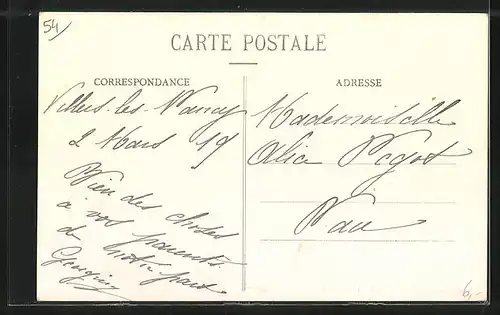 54
CARTE POSTALE
CORRESPONDANCE
Villers-les-Nancy
2 Mars 19
Bien des choses
à vos parents
de notre part
ADRESSE
Mademoiselle
Alice Pégot
Pau
6,-